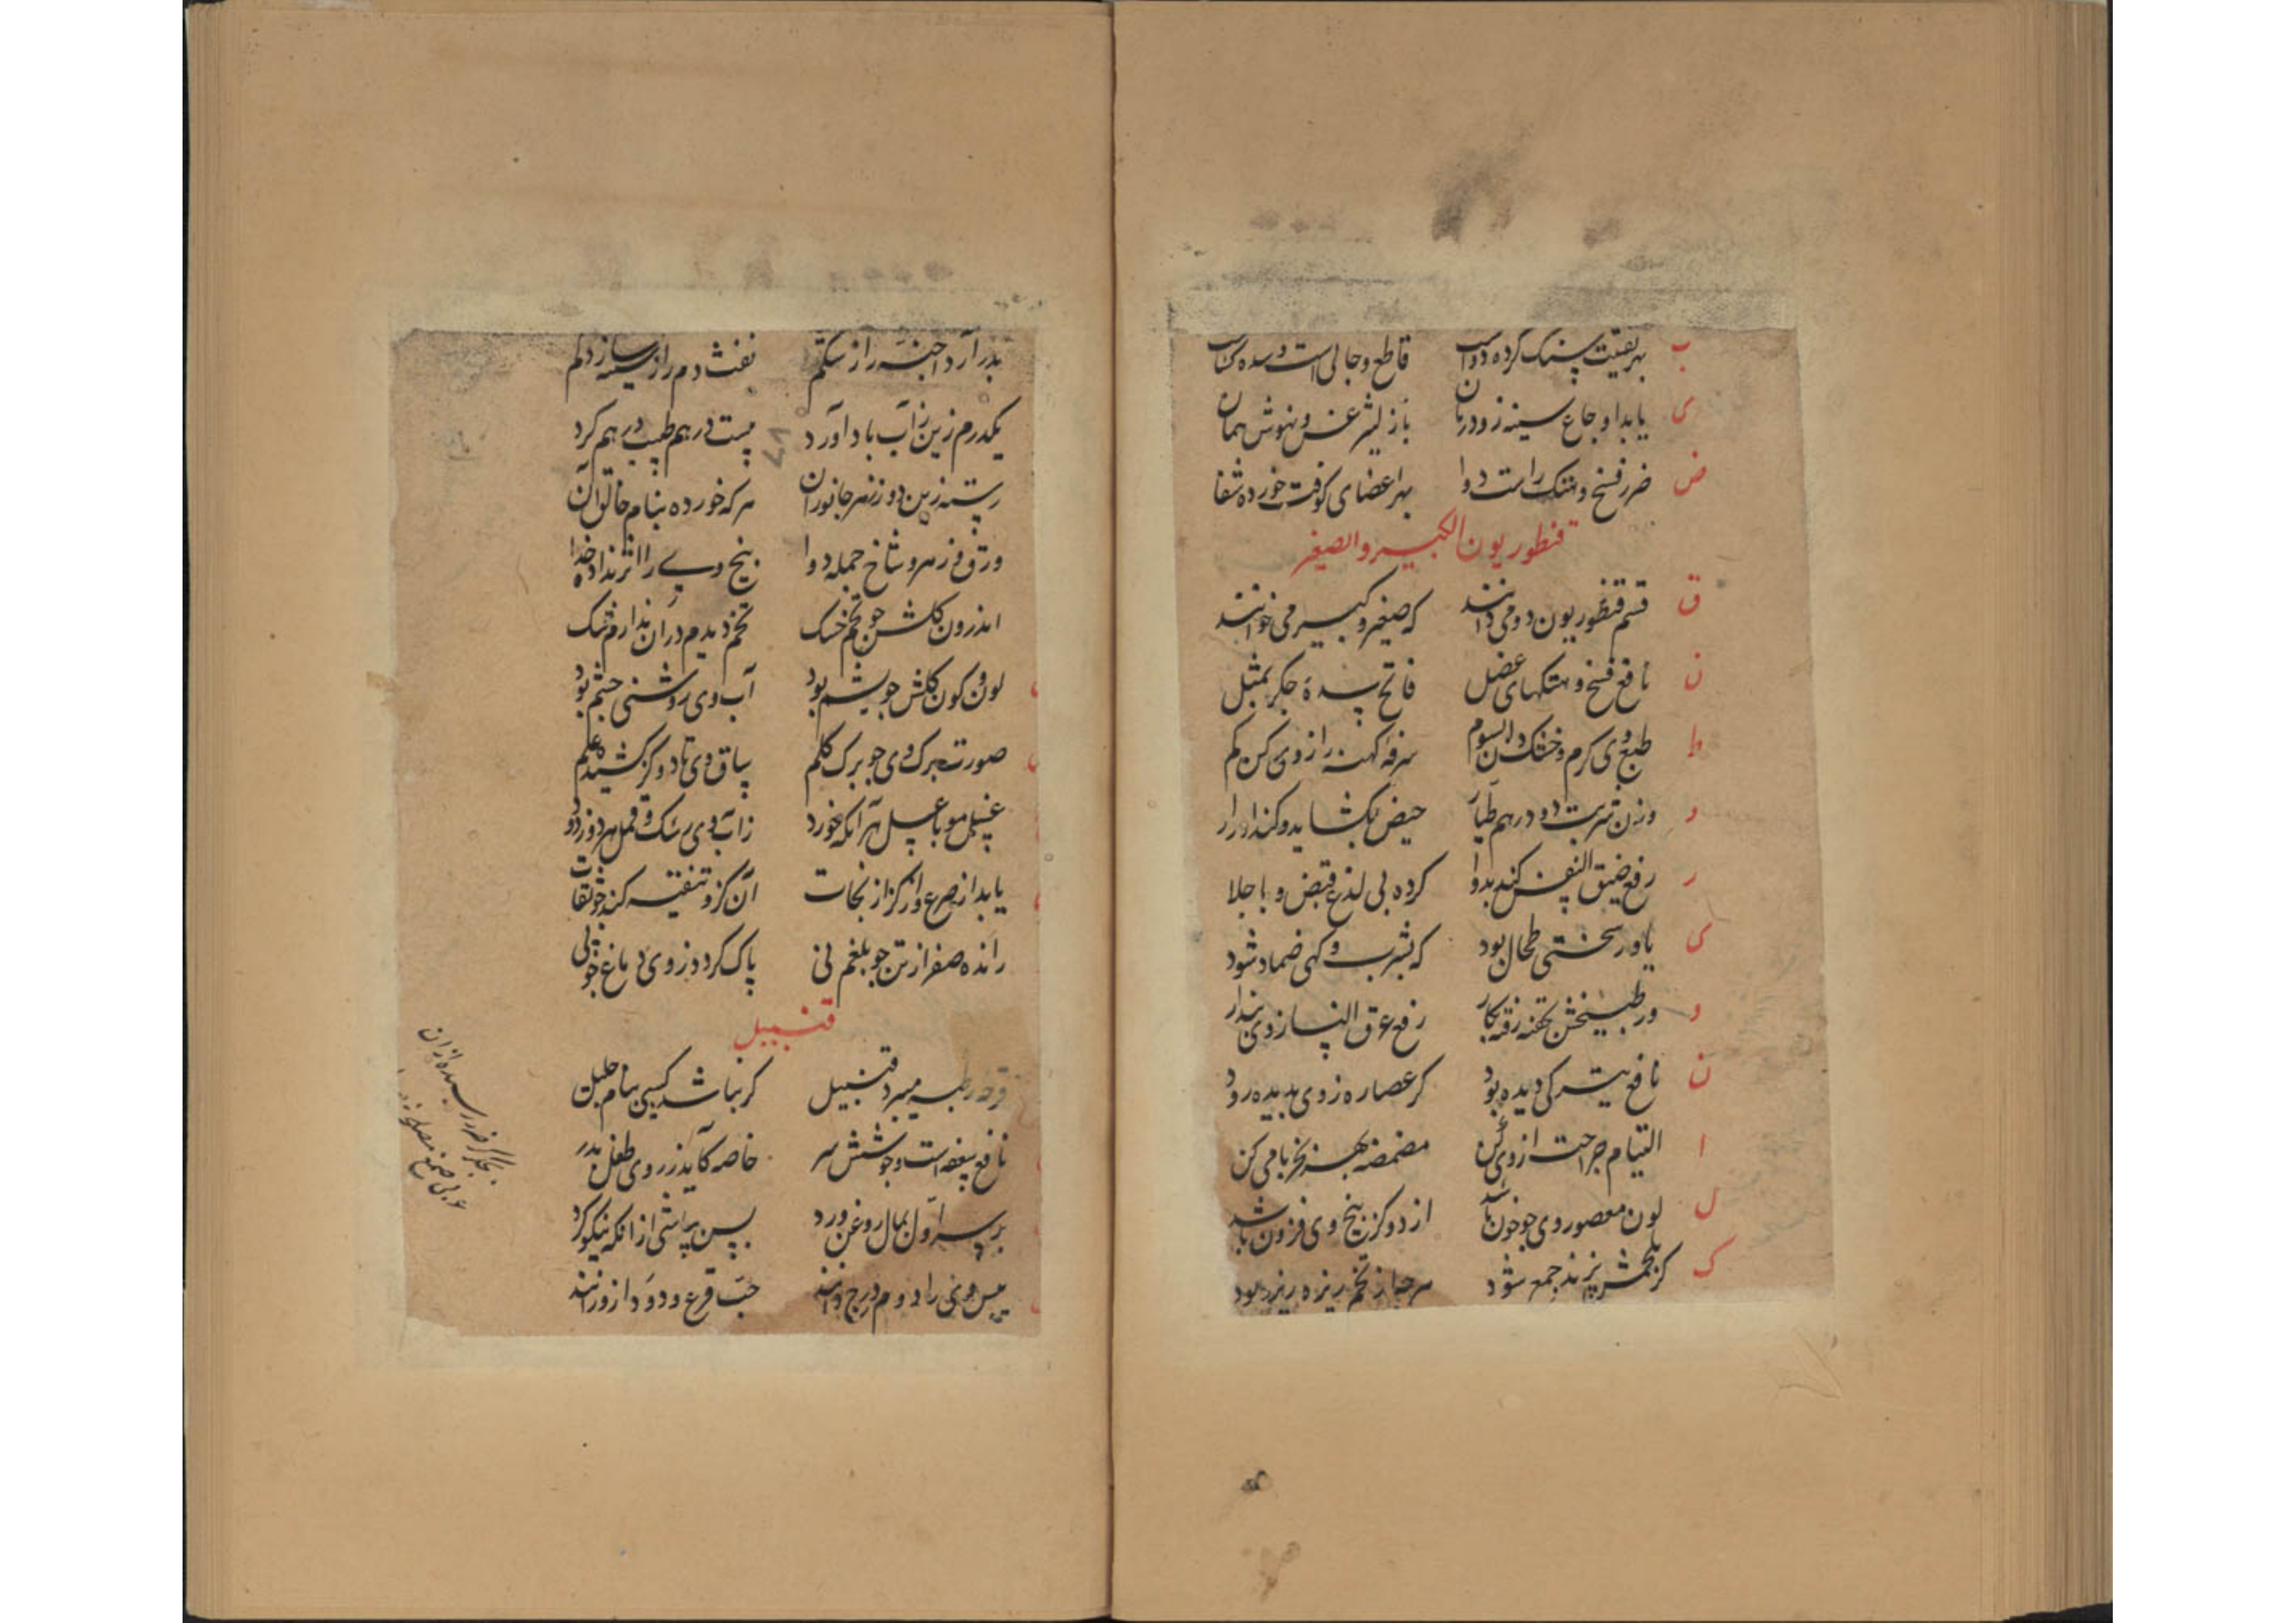 ب بهر تفتیت سنک کرده دواب قاطع و جالی است و سده کشاب
ی یابد اوجاع سینه زو درمان باز لیثرغس و نهوش همان
ض ضرر فسخ و هتک راست دوا بهر اعضای کوفت خورده شفا
قنطوریون الکبیر و الصغیر
ق قسم قنطوریون دو می دانند که صغیر و کبیر می خوانند
ن نافع فسخ و هتکهای عضل فاتح سدهٔ جکر بمثل
ط طبع وی کرم و خشک دان سوم سرفهٔ کهنه را ز وی کن کم
و وزن شربت دو درهم طیار حیض بکشاید و کند ادرار
ر رفع ضیق النفس کند بدوا کرده بی لذع قبض و با جلا
ی یاور سختی طحال بود که بشرب و کهی ضماد شود
و ور طبیخش بحقنه رفته بکار رفع عرق النسا ز وی پندار
ن نافع تیرکی دیده بود کر عصاره ز وی بدیده رود
ا التیام جراحت از وی کن مضمضه بهر بخر با می کن
ل لون معصور وی جو خون باشد از دو کز بیخ وی فزون باشد
ک کز پزند جمع شود هرچه از تخم ریزه ریزه بود
بدر آرد اجنه را ز شکم نفث دم را ز سینه سازد کم
یکدرم زین ز آب باد آورد هست درهم طبیب درهم کرد
رسته زین دو ز زهر جانوران هر که خورده بنام خالق آن
ورق و زهر و شاخ جمله دوا بیخ وی را اثر نداده خدا
اندرون کلش جو تخم خسک تخم دیدم در آن ندارم شک
لون و کون کلش جو یشم بود آب وی روشنی چشم بود
صورت برک وی جو برک کلم ساق وی تا دو کز کشیده علم
غسل مو با عسل هر آنکه خورد ز آب وی رشک و قمل هر دو زدود
یابد از صرع و از کزاز نجات آن کزو تنقیه کند جو ثقات
رانده صفرا ز تن جو بلغم نی پاک کردد ز وی دماغ جو پی
قنبیل
قرحه رطبه میبرد قنبیل کر نباشد کسی بنام خلیل
نافع سعفه است و جوشش سر خاصه کاید ز روی طفل بدر
بر سر اول بمال روغن ورد پس بپاشی از آنکه نیکو کرد
یبس وی را دوم درج دانند حب قرع و دود از و رانند